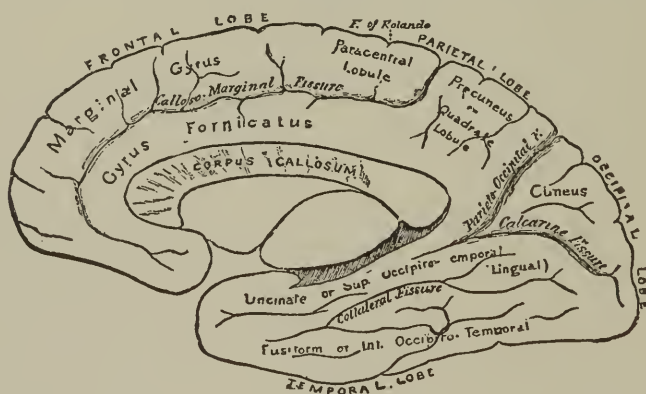 FRONTAL LOBE
F. of Rolando
PARIETAL LOBE
Marginal Gyrus
Paracentral
Lobule
Calloso-Marginal Fissure
Precuneus
or
Quadrate
Lobule
Gyrus Fornicatus
CORPUS CALLOSUM
Parieto-Occipital F.
OCCIPITAL LOBE
Cuneus
Calcarine Fissure
Uncinate or Sup. Occipito-emporal
Lingual)
Collateral Fissure
Fusiform or Inf. Occipito-Temporal
TEMPORAL LOBE